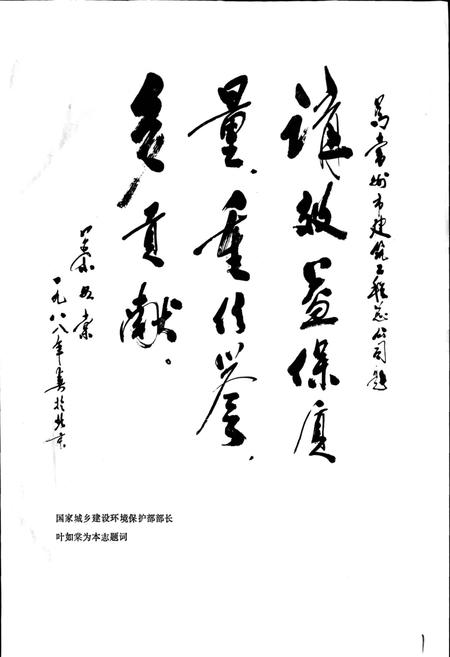 为常州市建筑工程总公司题
讲效益保质
量、重信誉、
多贡献。
叶如棠
一九八八年春于北京
国家城乡建设环境保护部部长
叶如棠为本志题词
1